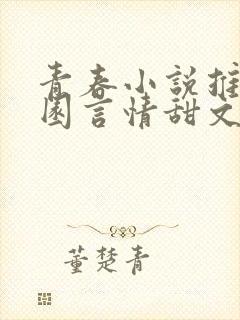 青春小說推
園言情甜文
董楚青